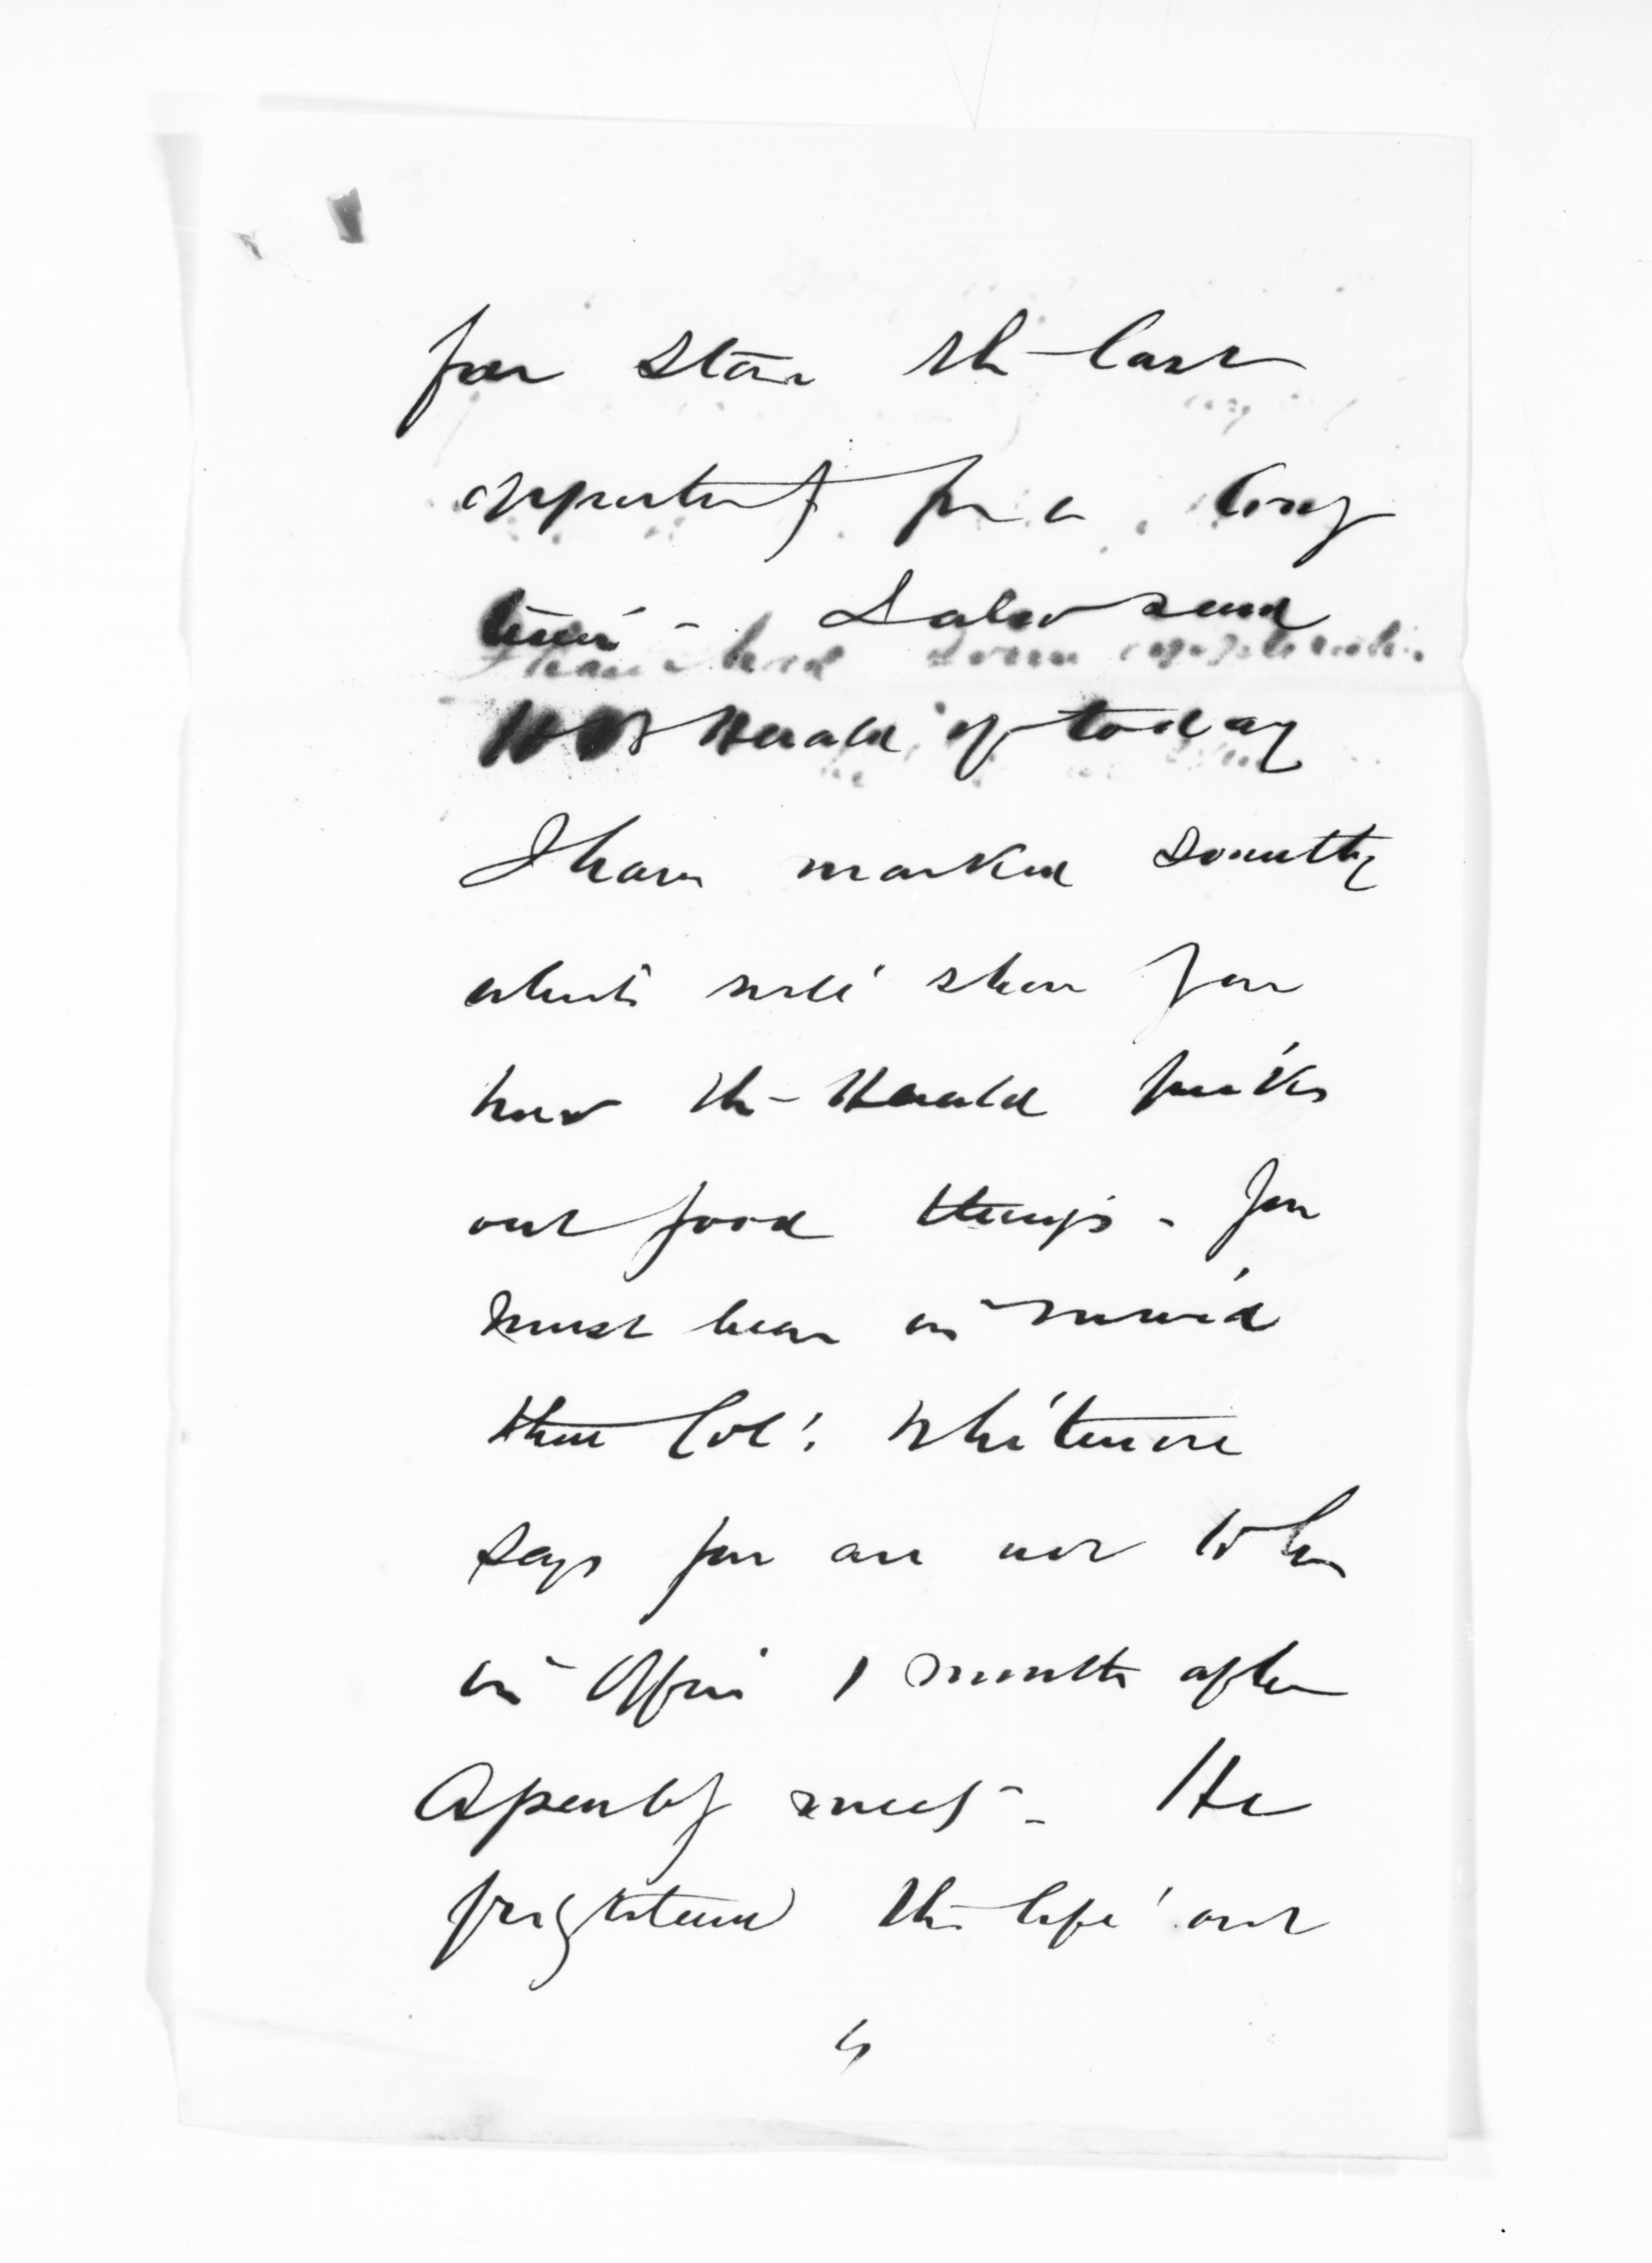 you stand the last
opportunity for a long
time - I also send
H B Herald of today
I have marked something
which will show you
how the Herald picks
out good things - You
must bear in mind
that Col. Whitmore
says you are not to be
in Office 1 month after
Assembly meets - He
frightened the life out